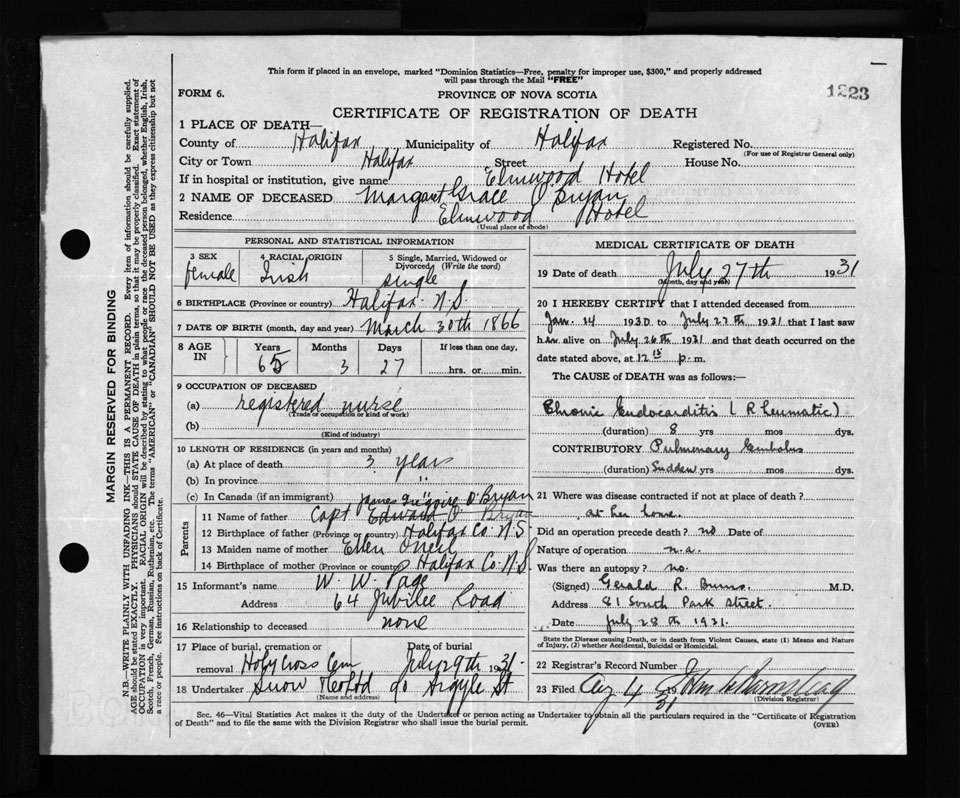 This form if placed in an envelope, marked "Dominion Statistics—Free, penalty for improper use, $300," and properly addressed
will pass through the Mail "FREE"
FORM 6.
PROVINCE OF NOVA SCOTIA
1223
CERTIFICATE OF REGISTRATION OF DEATH
1 PLACE OF DEATH—
County of Halifax Municipality of Halifax Registered No.
(For use of Registrar General only)
City or Town Halifax Street House No.
If in hospital or institution, give name Elmwood Hotel
2 NAME OF DECEASED Margaret Grace O'Bryan
Residence Elmwood Hotel
(Usual place of abode)
MARGIN RESERVED FOR BINDING
N.B.—WRITE PLAINLY WITH UNFADING INK—THIS IS A PERMANENT RECORD. Every item of information should be carefully supplied.
AGE should be stated EXACTLY. PHYSICIANS should STATE CAUSE OF DEATH in plain terms, so that it may be properly classified. Exact statement of
OCCUPATION is very important. RACIAL ORIGIN will be described by stating to what people or race the deceased person belonged, whether English, Irish,
Scotch, French, German, Russian, Ruthenian, etc. The terms "AMERICAN" or "CANADIAN" SHOULD NOT BE USED as they express citizenship but not
a race or people. See instructions on back of Certificate.
PERSONAL AND STATISTICAL INFORMATION
3 SEX 4 RACIAL ORIGIN 5 Single, Married, Widowed or
Divorced (Write the word)
female Irish single
6 BIRTHPLACE (Province or country) Halifax N.S.
7 DATE OF BIRTH (month, day and year) March 30th 1866
8 AGE IN Years Months Days If less than one day,
65 3 27 hrs. or min.
9 OCCUPATION OF DECEASED
(a) registered nurse
(Trade or occupation or kind of work)
(b)
(Kind of industry)
10 LENGTH OF RESIDENCE (in years and months)
(a) At place of death 3 years
(b) In province " "
(c) In Canada (if an immigrant)
James O'Bryan
Parents
11 Name of father Capt Edward O'Bryan
12 Birthplace of father (Province or country) Halifax Co. N.S.
13 Maiden name of mother Ellen Oneil
14 Birthplace of mother (Province or country) Halifax Co. N.S.
15 Informant's name W. W. Page
Address 64 Jubilee Road
16 Relationship to deceased none
17 Place of burial, cremation or removal Holy Cross Cem Date of burial July 29th 1931
18 Undertaker Snow 90 Argyle St
(Name and address)
MEDICAL CERTIFICATE OF DEATH
19 Date of death July 27th 1931
(Month, day and year)
20 I HEREBY CERTIFY that I attended deceased from
Jan. 14 1930 to July 27th 1931 that I last saw
her alive on July 26th 1931 and that death occurred on the
date stated above, at 12 15 p. m.
The CAUSE of DEATH was as follows:—
Chronic Endocarditis (Rheumatic)
(duration) 8 yrs mos dys.
CONTRIBUTORY Pulmonary Embolus
(duration) Sudden yrs mos dys.
21 Where was disease contracted if not at place of death?
at her home.
Did an operation precede death? no Date of
Nature of operation n.a.
Was there an autopsy? no.
(Signed) Gerald R. Burns. M.D.
Address 81 South Park Street.
Date July 28th 1931.
State the Disease causing Death, or in death from Violent Causes, state (1) Means and Nature
of Injury, (2) whether Accidental, Suicidal or Homicidal.
22 Registrar's Record Number
23 Filed Aug 4 31
(Division Registrar)
Sec. 46—Vital Statistics Act makes it the duty of the Undertaker or person acting as Undertaker to obtain all the particulars required in the "Certificate of Registration
of Death" and to file the same with the Division Registrar who shall issue the burial permit.
(OVER)